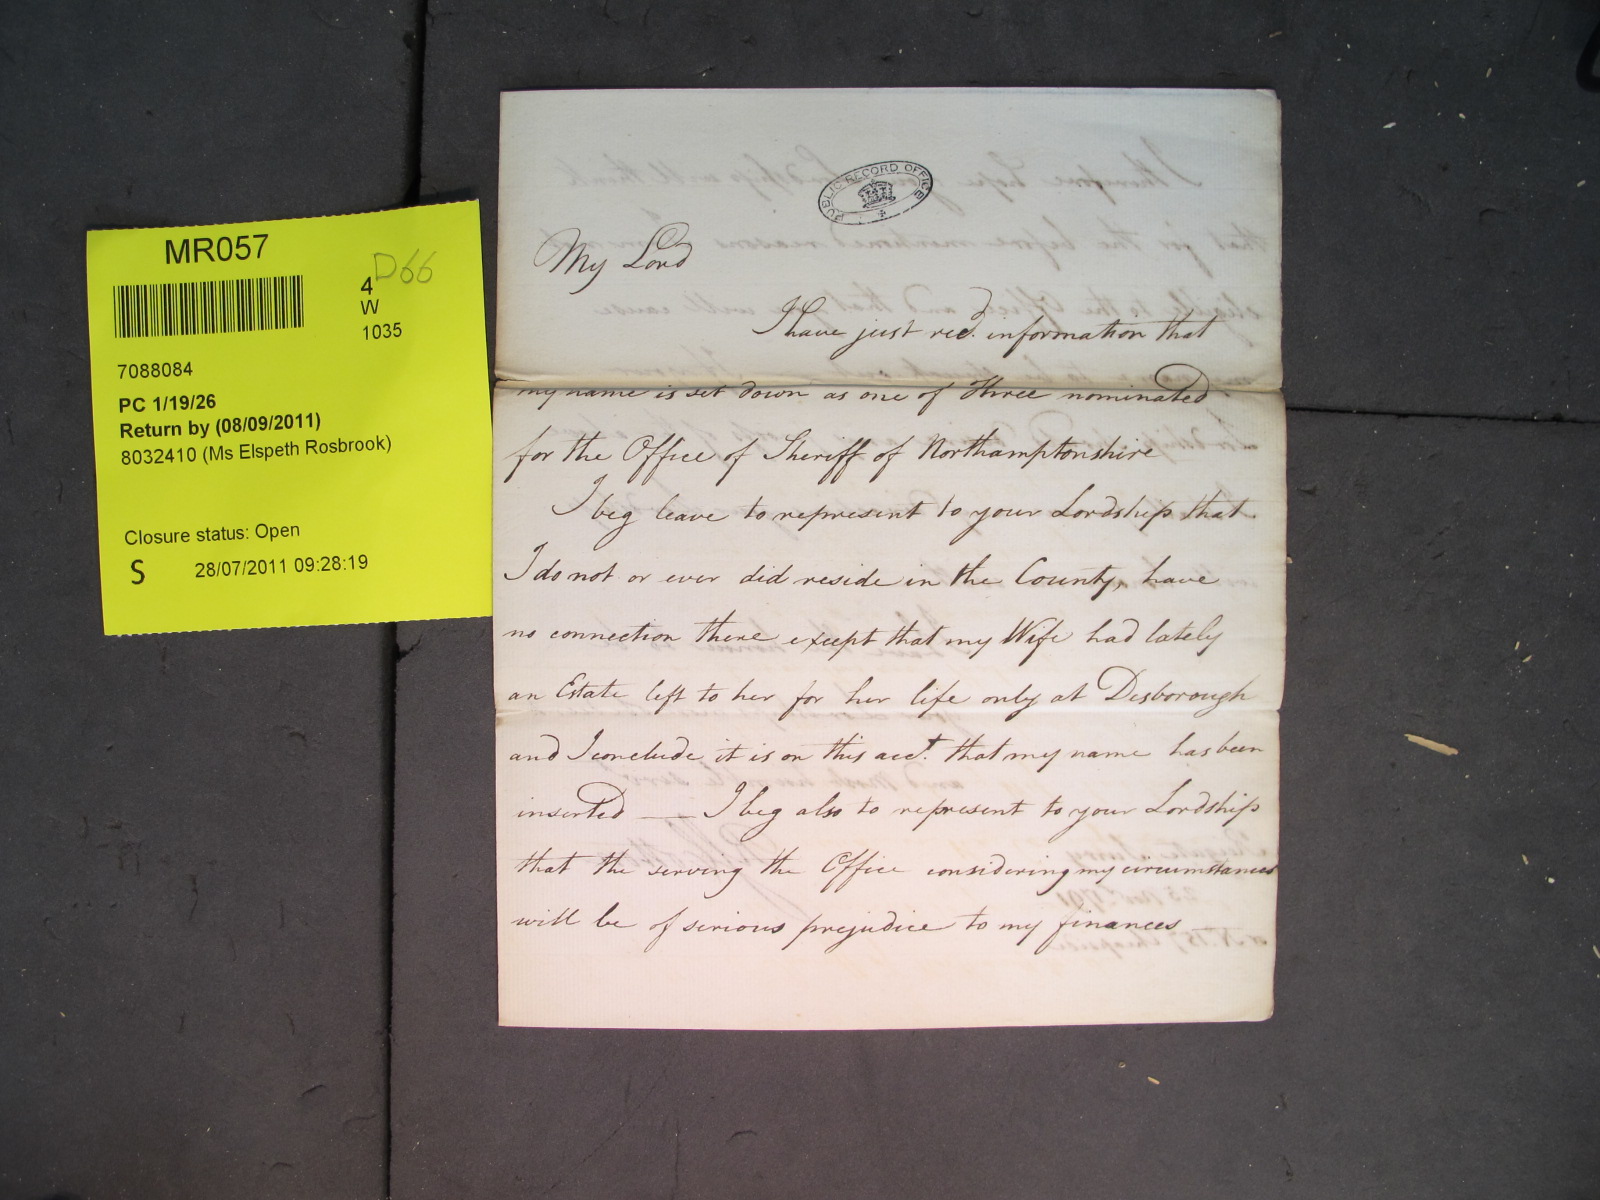 MR057
D66
4
W
1035
7088084
PC 1/19/26
Return by (08/09/2011)
8032410 (Ms Elspeth Rosbrook)
Closure status: Open
S 28/07/2011 09:28:19
PUBLIC RECORD OFFICE
My Lord
I have just recd. information that
my name is set down as one of three nominated
for the Office of Sheriff of Northamptonshire
I beg leave to represent to your Lordship that
I do not or ever did reside in the County, have
no connection there except that my Wife had lately
an Estate left to her for her life only at Desborough
and I conclude it is on this acct. that my name has been
inserted — I beg also to represent to your Lordship
that the serving the Office considering my circumstances
will be of serious prejudice to my finances